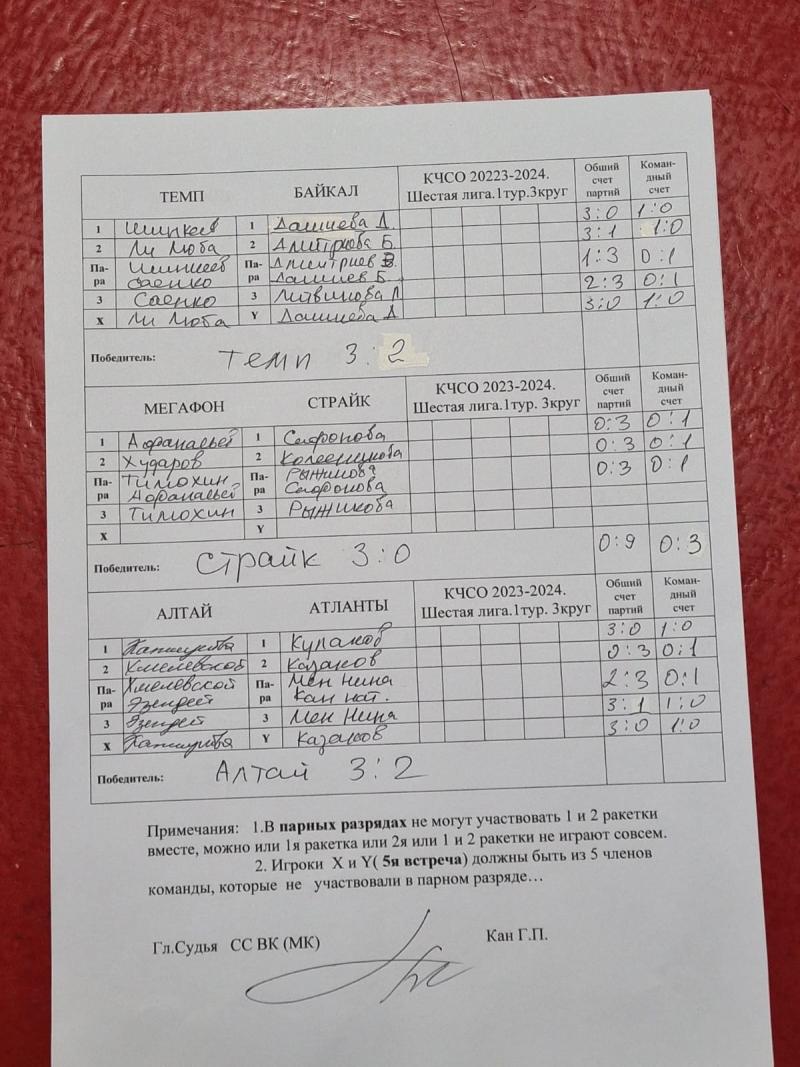 ТЕМП БАЙКАЛ КЧСО 20223-2024. Шестая лига.1тур.3круг Общий счет партий Коман-дный счет
1 1 Дашиева Д. 3:0 1:0
2 Ли Люба 2 Дмитриева Б. 3:1 1:0
Па-ра Саенко Па-ра Дмитриев В. Дашиев Б. 1:3 0:1
3 Саенко 3 Литвинова Л 2:3 0:1
X Ли Люба Y Дашиева Д 3:0 1:0
Победитель: Темп 3:2
МЕГАФОН СТРАЙК КЧСО 2023-2024. Шестая лига.1тур. 3круг Общий счет партий Коман-дный счет
1 Афанасьев 1 Сафонова 0:3 0:1
2 Хударов 2 0:3 0:1
Па-ра Тимохин Афанасьев Па-ра Рыжикова Сафонова 0:3 0:1
3 Тимохин 3 Рыжикова
X Y
Победитель: Страйк 3:0 0:9 0:3
АЛТАЙ АТЛАНТЫ КЧСО 2023-2024. Шестая лига.1тур. 3круг Общий счет партий Коман-дный счет
1 1 Купаков 3:0 1:0
2 Хмелевской 2 Казаков 0:3 0:1
Па-ра Хмелевской Па-ра Мен Нина Кан нат. 2:3 0:1
3 3 Мен Нина 3:1 1:0
X Y Казаков 3:0 1:0
Победитель: Алтай 3:2
Примечания: 1.В парных разрядах не могут участвовать 1 и 2 ракетки
вместе, можно или 1я ракетка или 2я или 1 и 2 ракетки не играют совсем.
2. Игроки X и Y( 5я встреча) должны быть из 5 членов
команды, которые не участвовали в парном разряде…
Гл.Судья СС ВК (МК) Кан Г.П.